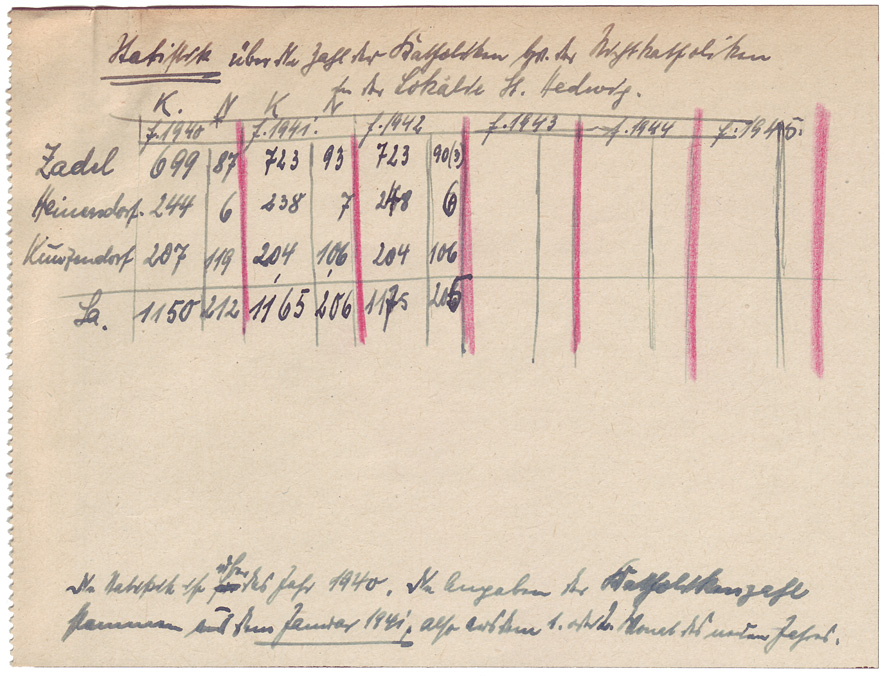 Statistik über die Zahl der Katholiken bzw. der Nichtkatholiken
in der Lokalie St. Hedwig.
K. N K N
f. 1940 f. 1941. f. 1942 f. 1943 f. 1944 f. 1945.
Zadel 699 87 723 93 723 90(3)
Heinersdorf. 244 6 238 7 248
Kunzendorf 207 119 204 106 204 106
Sa. 1150 212 1165 206 1175 205
Die Statistik ist über das Jahr 1940. Die Angaben der Katholikenzahl
stammen aus dem Januar 1941, also aus dem 1. oder 2. Monat des neuen Jahres.